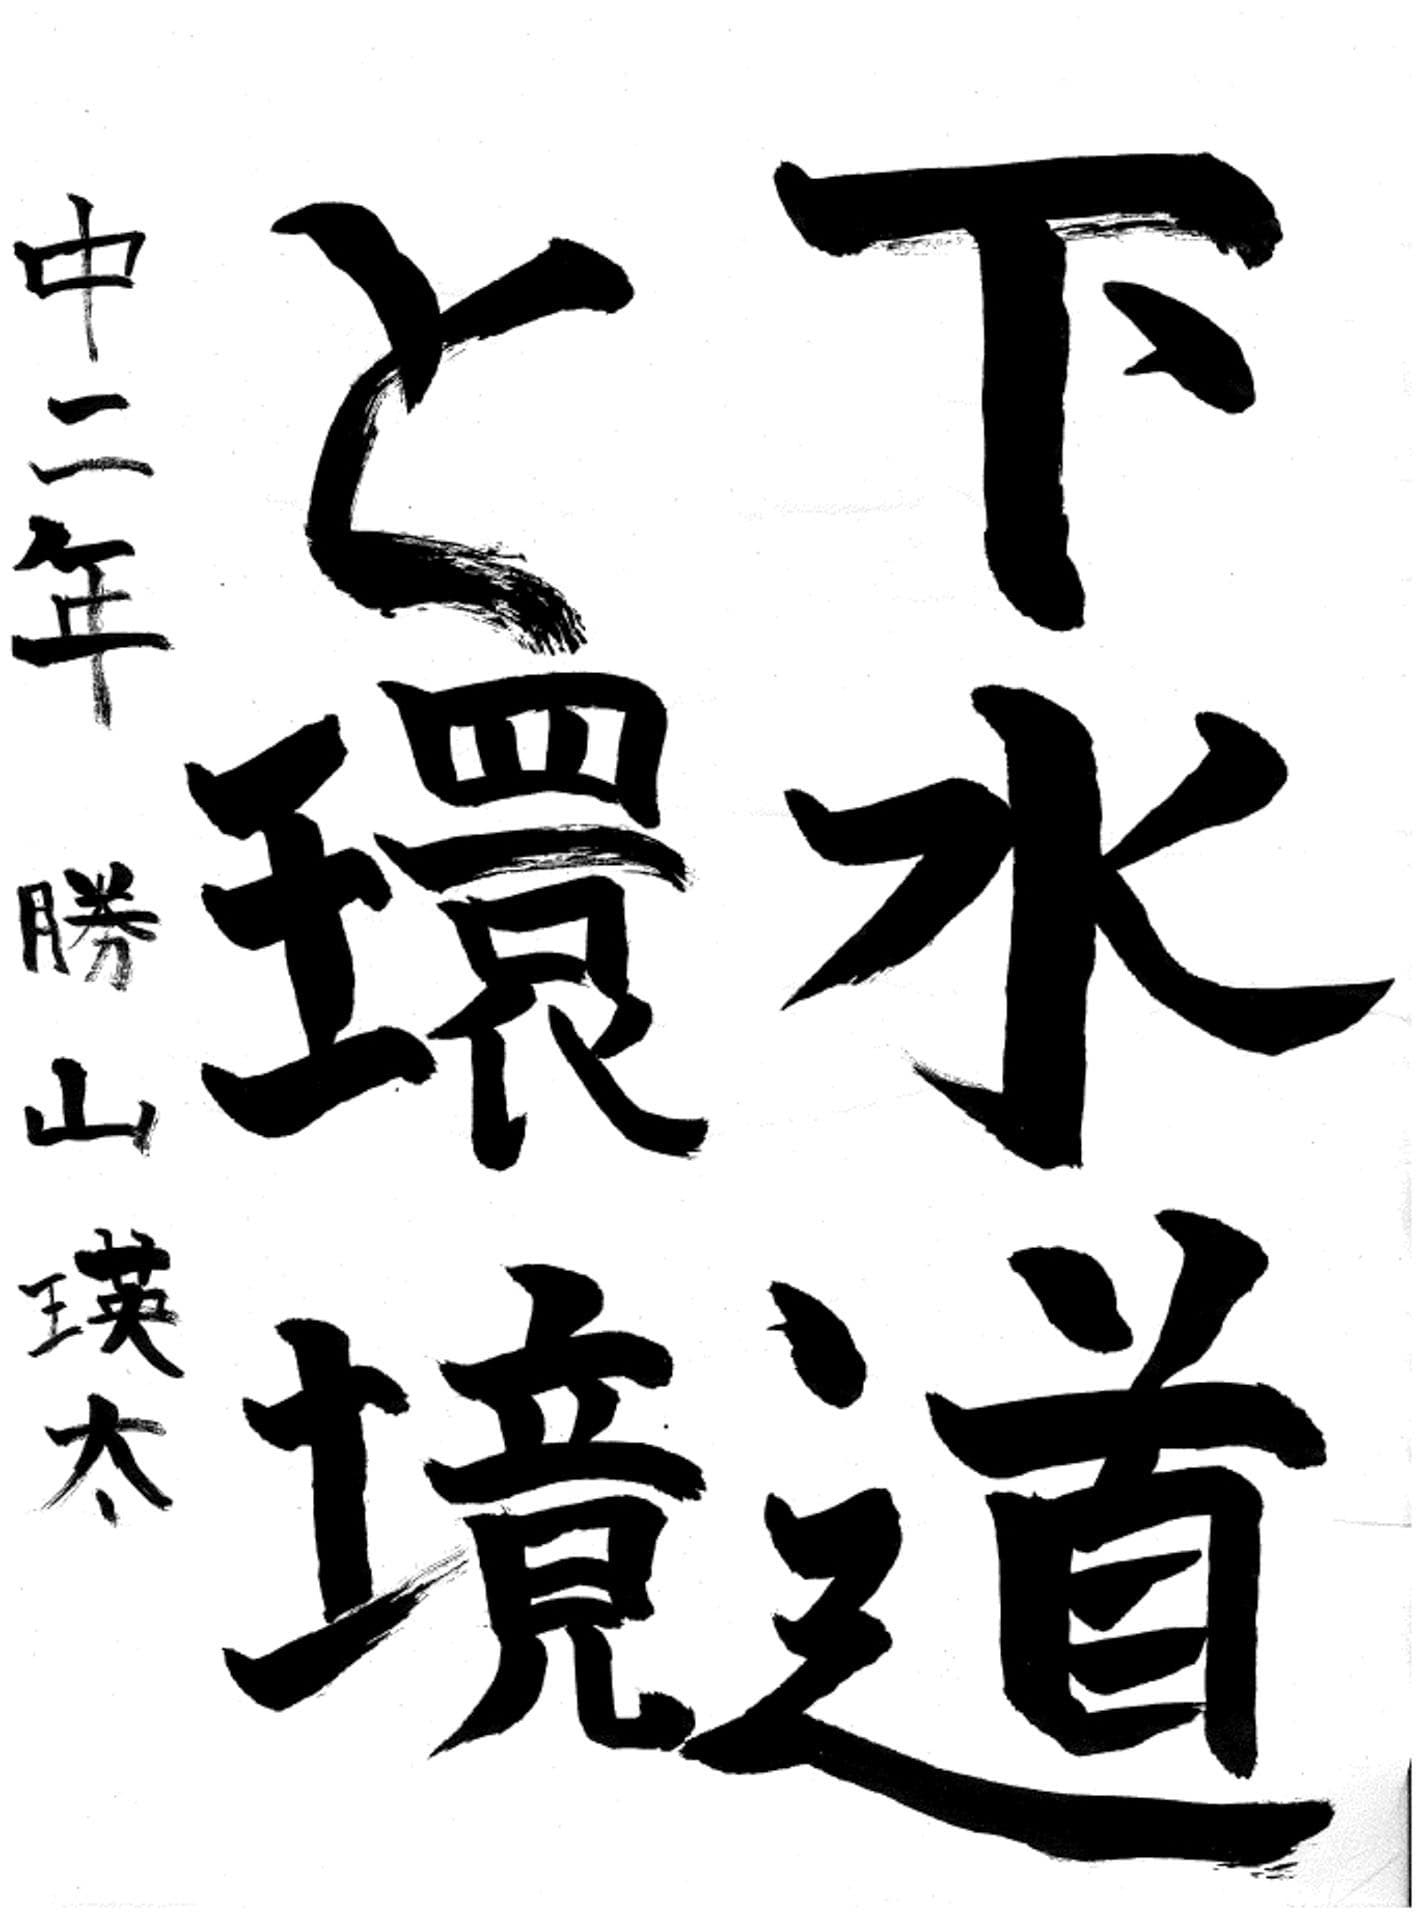 下水道
と環境
中二年 勝山瑛太